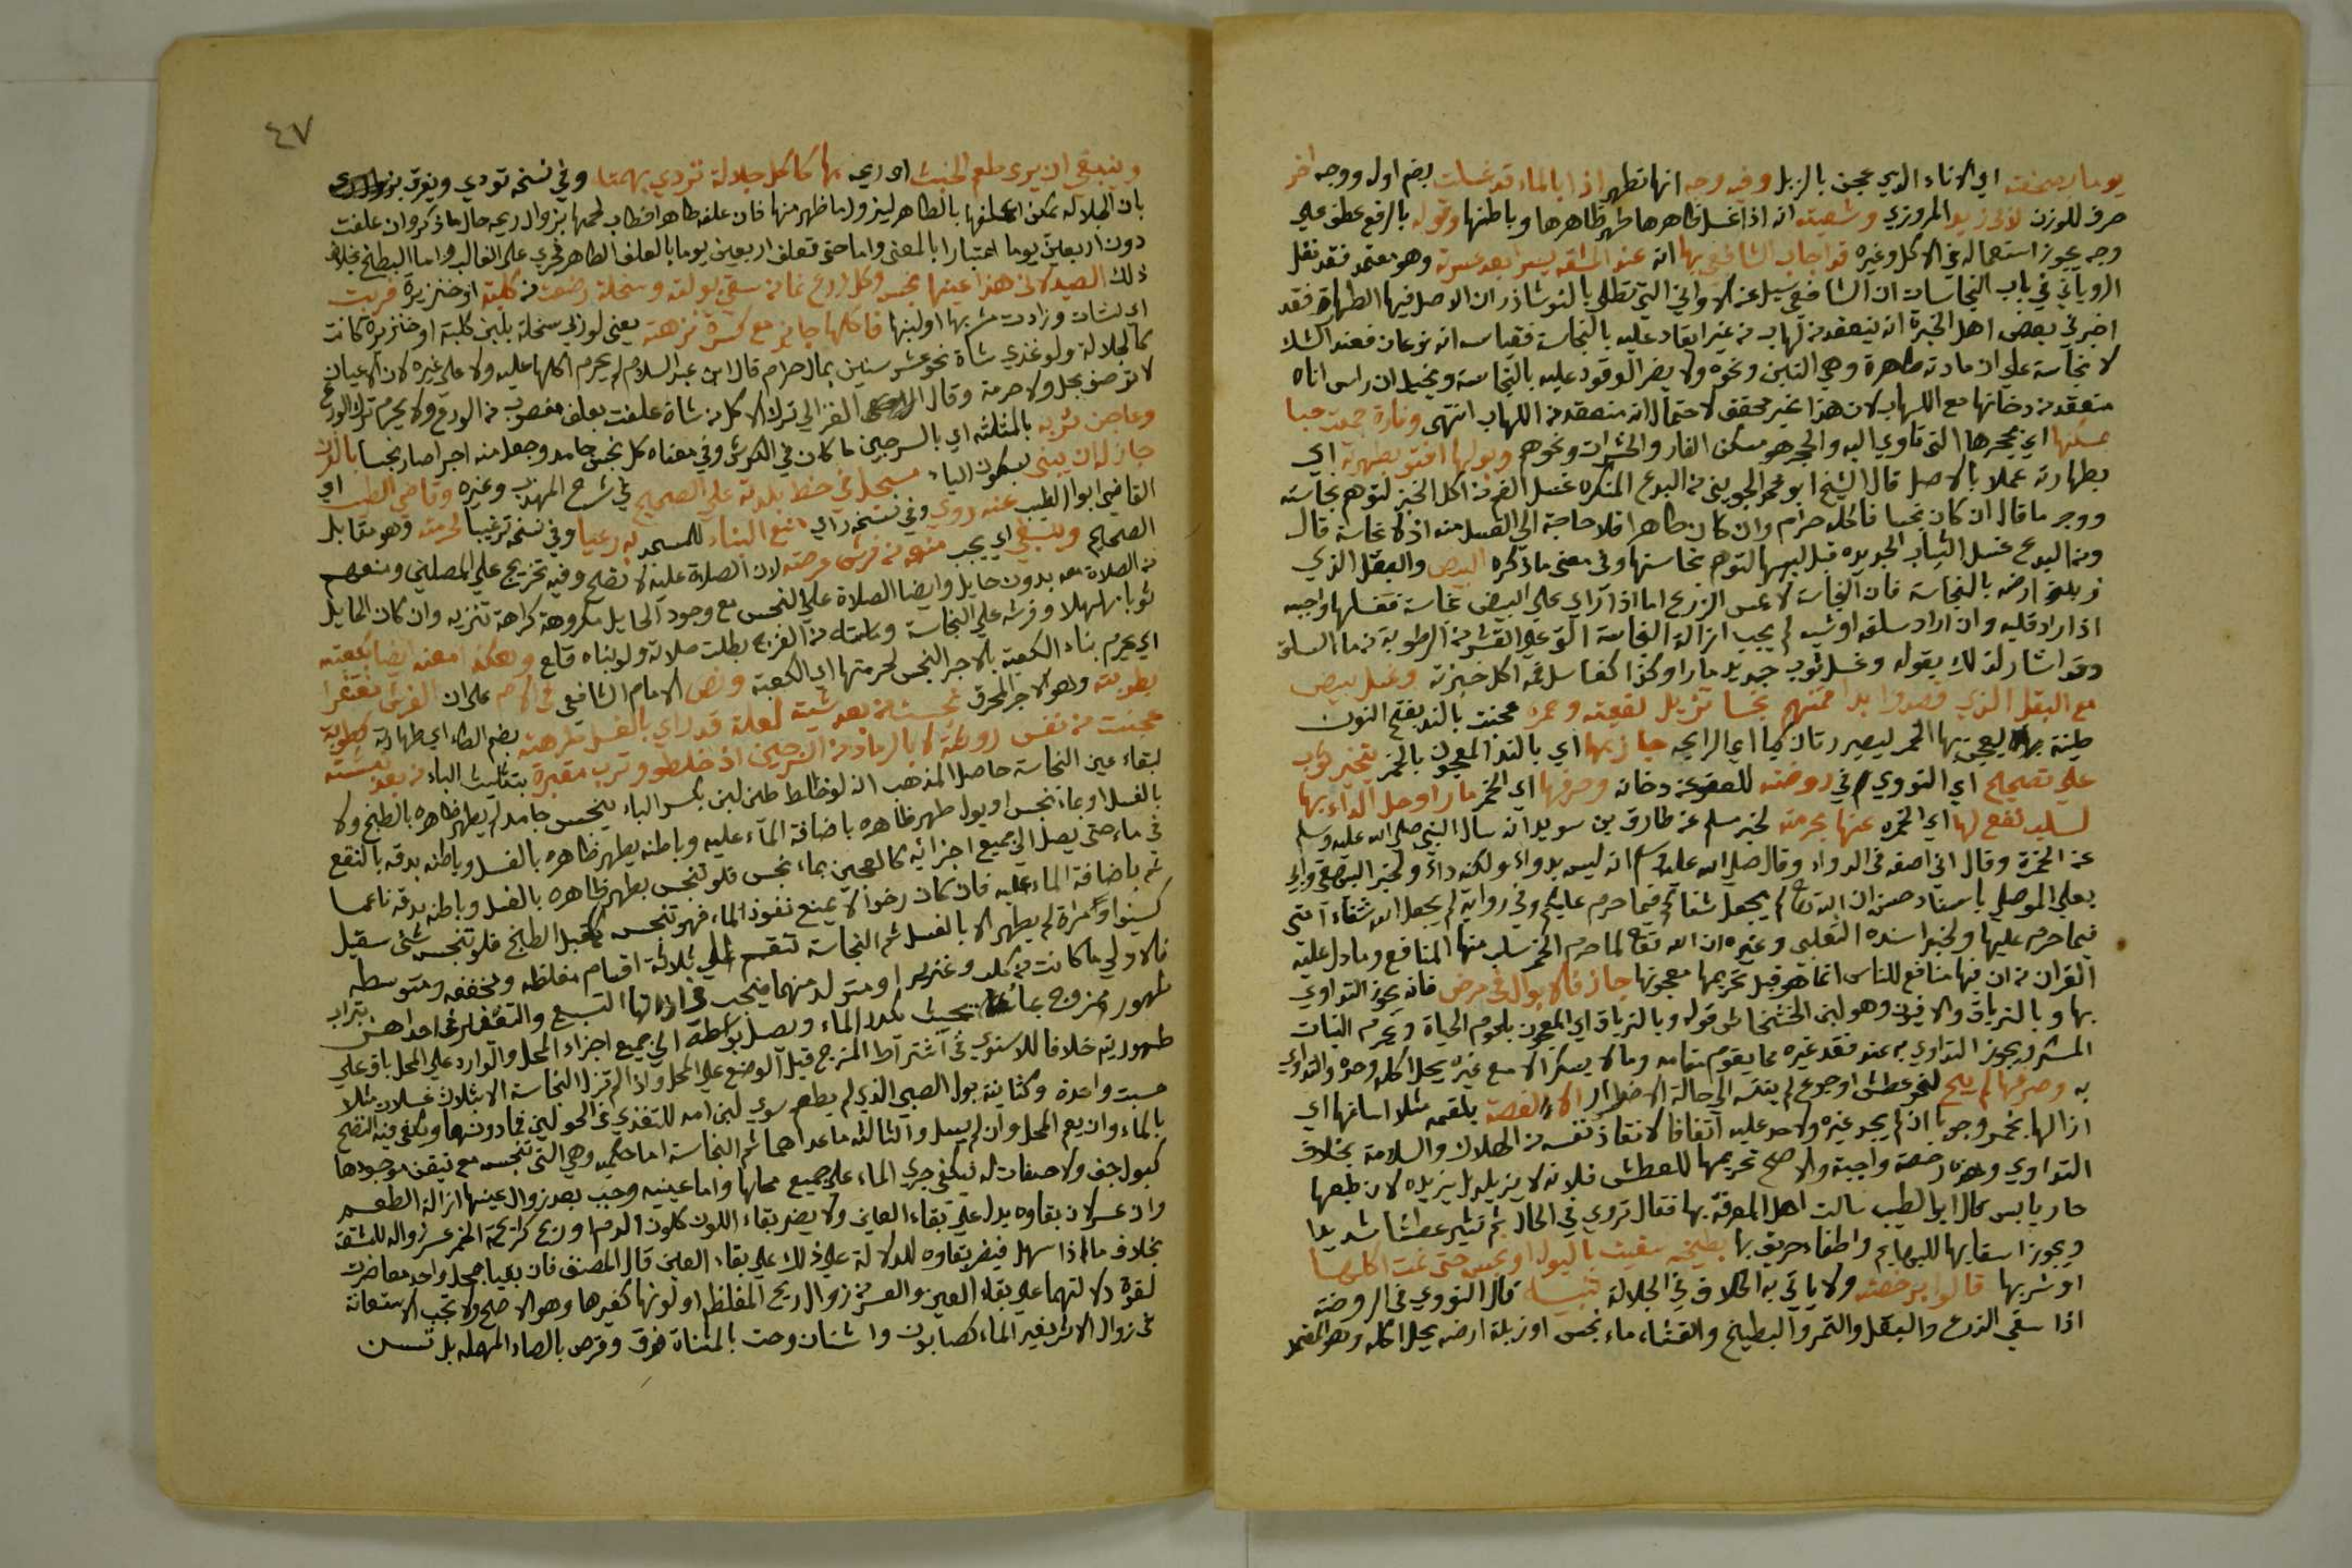 يوما بصحفته اي الاناء الذي عجن بالزبل وفيه وجه انها تطهر اذا بالماء قد غسلت بضم اوله ووجه اخر
صرف للوزن لابي زيد المروزي وشعته انه اذا غسل ظاهرها طهر ظاهرها وباطنها وقوله بالرفع عطف علي
وجه يجوز استعماله في الاكل وغيره قد اجاب الشافعي بها انه عند المشقه يسرا بعد عسرة وهو معتمد فقد نقل
الروياني في باب النجاسات ان الشافعي سيل عن الاواني التي تطلي بالنوشاذر ان الاصل فيها الطهارة فقد
اخبرني بعض اهل الخبرة انه ينعقد من لهاب من غير ايقاد عليه بالنجاسة فقياسه انه نوعان فعند الشك
لا نجاسة علي ان مادته طاهرة وهي التبن ونحوه ولا يضر الوقود عليه بالنجاسة وتخيل ان راس اناه
منعقد من دخانها مع اللهاب لان هذا غير محقق لاحتمال انه منعقد من اللهاب انتهي وفارة جمعت حبا
بمسكنها اي بحجرها التي تاوي اليه والحجر هو مسكن الفار والحشرات ونحوهم وبولها افتو بطهرته اي
بطهارته عملا بالاصل قال الشيخ ابو محمد الجويني من البدع المنكره غسل الفم من اكل الخبز لتوهم نجاسته
ووجه ما قال ان كان نجسا فاكله حرام وان كان طاهرا فلا حاجة الي الغسل منه اذ لا نجاسة قال
ومن البدع غسل الثياب الجديده قبل لبسها لتوهم نجاستها وفي معني ماذكره البيض والبقل الذي
زبلت ارضه بالنجاسة فان النجاسة لا تمس الزرع اما اذا راي علي البيض نجاسة فغسلها واجب
اذا اراد قليه وان اراد سلقه او شيه لم يجب ازالة النجاسة التي علي القشر من الرطوبة من ماء السلق
وقد اشار لذلك بقوله وغسل ثوب جديد ما راوا وكذا كغاسل فمه اكل خبزته وغسل بيض
مع البقل الذي قصدوا بدا فمنهم نجسا تزبل لقعته وخمره عجنت بالند بفتح النون
طينة بها يعجن بها الخمر ليصير ريان كيا اي الرايحه جاز بها اي بالند المعجون بالخمر بتخير ثوب
علي تصحيح اي النووي في روضته للعفو عن دخانه وصرفها اي الخمر ما راوا حل الداء بها
لسلب نفع لها اي الخمره عنها بحرمته لخبر مسلم عن طارق بن سويد انه سال النبي صلي الله عليه وسلم
عن الخمرة وقال اني اصفه في الدواء وقال صلي الله عليه وسلم انه ليس بدواء ولكنه داء ولخبر البيهقي وابي
يعلي الموصلي باسناد حسن ان الله تعالي لم يجعل شفاكم فيما حرم عليكم وفي رواية لم يجعل الله شفاء امتي
فيما حرم عليها ولخبر اسنده الثعلبي وغيره ان الله تعالي لما حرم الخمر سلب منها المنافع وما دل عليه
القران من ان فيها منافع للناس انما هو قبل تحريمها معجونها جاز كالابوال في مرض فانه يجوز التداوي
بها وبالترياق والافيون وهو لبن الخشخاش قوله وبالترياق اي المعجون بلحوم الحيات ويحرم النبات
المسكر ويجوز التداوي به عند فقد غيره مما يقوم مقامه وما لا يسكر الا مع غيره يحل اكله وحده والتداوي
به وصرفها لم يبح لنحو عطش او جوع لم ينته الي حالة الاضطرار الا الغصة بلقمه مثلا اساغها اي
ازالها بخمر وجوبا ان لم يجد غيره ولا حد عليه اتفاقا لانقاذ نفسه من الهلاك والسلامة بخلاف
التداوي وهذه رخصة واجبة والاصح تحريمها للعطش فلانه لا يزيله بل يزيده لان طبعها
حار يابس قال ابو الطيب سالت اهل المعرفة بها فقال تروي في الحال ثم تثير عطشا شديدا
ويجوز اسقايها للبهايم واطفاء حريق بها بطيخه سقيت بالبول او نجس حتي نمت اكلها
او شربها قالوا برخصته ولا ياتي به الخلاف في الجلالة تنبيه قال النووي في الروضة
اذا سقي الزرع والبقل والثمر والبطيخ والقثاء ماء نجس او زبلة ارضه يحل اكله وهو المعتمد
٤٧
وينبغي ان يري طعم الخبث او ريحه بها كاكل جلالة تزدي بهمتها وفي نسخه تودي ويفرق
بان الجلاله يمكن اعلفها بالطاهر ليزول ما ظهر منها فان علفه طاهر افطاب لحمها بزوال ريحه حال ما ذكر وان علفت
دون اربعين يوما اعتبارا بالمعني واما حتي تعلف اربعين يوما بالعلف الطاهر فجري علي الغالب واما البطيخ بخلاف
ذلك الصيد لان هذا عينها نجس وكل زرع نما من سقي بولته وسخلة رضعت من كلبة او خنزيرة فربت
اي نشات وزادت بشربها اولبنها فاكلها جايز مع كسرة نزهته يعني لو ربي سخلة بلبن كلبة او خنزيرة كانت
كالجلالة ولو غذي شاة نحو عشر سنين بمال حرام قال ابن عبد السلام لم يحرم اكلها عليه ولا علي غيره لان الاعيان
لا توصف بحل ولا حرمة وقال الغزالي ترك الاكل من شاة علفت بعلف مغصوب من الورع ولا يحرم ترك الورع
وعاجن تربه بالمثلثه اي بالسرجين ما كان في الكرش وفي معناه كل نجس جامد وجعل منه اجرا صار نجسا بالفرق
جاز له ان يبني بسكون الياء مسجلا في خط بلدته علي الصحيح في شرح المهذب وغيره وقاضي الطيب اي
القاضي ابوا الطيب عنه روي وفي نسخه راي امنع البناء للمسجد به رعيا وفي نسخه ترغيبا لحرمته وهو مقابل
الصحيح وينبغي اي يجب منعه من فرش عرصته لان الصلاة عليه لا تصح وفيه تخريج علي المصلين ومنعهم
من الصلاة معه بدون حايل وايضا الصلاة علي النجس مع وجود الحايل مكروهة كراهة تنزيه وان كان الحايل
ثوبا مهلهلا وفرشه علي النجاسة وماسته من الفرج بطلت صلاته ولو بناه قلع وهكذا امعنه ايضا بكعبته
اي يحرم بناء الكعبة بالاجر النجس لحرمتها اي الكعبة ونص الامام الشافعي في الام علي ان الفرش مغتفرا
بطوبته وهو الاجر المحرق نجسة من بعد شيته لعلة قد راي بالغسل طهرته بضم الطاء اي طهارته كطوبة
عجنت من نفس روثته لا بالرماد من السرجين اذ خلطو وترب مقبرة بتثليث الباء من بعد نبشته
لبقاء عين النجاسة حاصل المذهب انه لو خالط طين لبن بكسر الباء بنجس جامد لم يطهر ظاهره بالطبخ ولا
بالغسل او بماء نجس او بول طهر ظاهره باضافة الماء عليه وباطنه يطهر ظاهره بالغسل وباطنه بدقه بالنقع
في ماء حتي يصل الي جميع اجزائه كالعجين بماء نجس فلو تنجس يطهر ظاهره بالغسل وباطنه بدقه ناعما
ثم باضافة الماء عليه فان كان رخوا لا يمنع نفوذ الماء فهو تنجس كقبل الطبخ فلو تنجس شئ سقيل
كسيف او كمراة لم يطهر الا بالغسل ثم النجاسة تنقسم الي ثلاثة اقسام مغلظه ومخففه ومتوسطه
فالاولي ما كانت من كلب وخنزير او متولد منهما فيجب في ازالتها التسبيع والتعفير في احداهن بتراب
طهور ممزوج بماء بحيث يكدر الماء ويصل بواسطة الي جميع اجزاء المحل والوارد علي المحل باق علي
طهوريته خلافا للاسنوي في اشتراط المزج قبل الوضع علي المحل واذا لم تزل النجاسة الا بثلاث غسلات مثلا
حسبت واحدة وكثانية بول الصبي الذي لم يطعم سوي لبن امه للتغذي في الحولين فما دونهما ويكفي فيه النضح
بالماء وان يعم المحل وان لم يسل والثالثه ما عداهما ثم النجاسة اما حكميه وهي التي تنجسه مع تيقن وجودها
كبول جف ولا صفات له فيكفي جري الماء علي جميع محلها واما عينيه وجب بعد زوال عينها ازالة الطعم
وان عسر لان بقاوه يدل علي بقاء العين ولا يضر بقاء اللون كلون الدم او ريح كرائحة الخمر عسر زواله للمشقة
بخلاف ما اذا سهل فيضر بقاوه للدلالة علي ذلك علي بقاء العين قال المصنف فان بقيا بمحل واحد معا ضرت
لقوة دلالتهما علي بقاء العين والعسر من زوال ريح المغلظ او لونها كغيرها وهو الاصح ولا تجب الاستعانة
في زوال الاثر بغير الماء كصابون واشنان وحت بالمثناة فوق وقرص بالصاد المهمله بل تسن